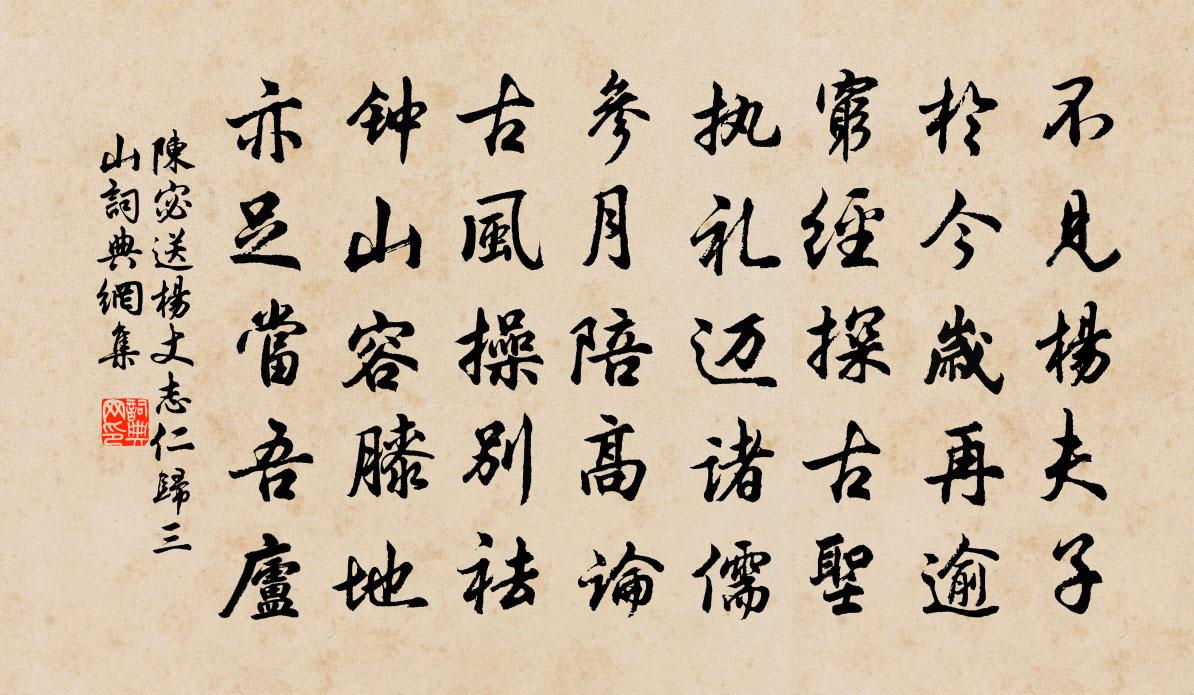 不見楊夫子
於今歲再逾
窮經探古聖
执礼迈诸儒
參月陪高論
古風操別袪
钟山容膝地
亦足當吾廬
陳宓送楊丈志仁歸三
山詞典網集
詞典
网印